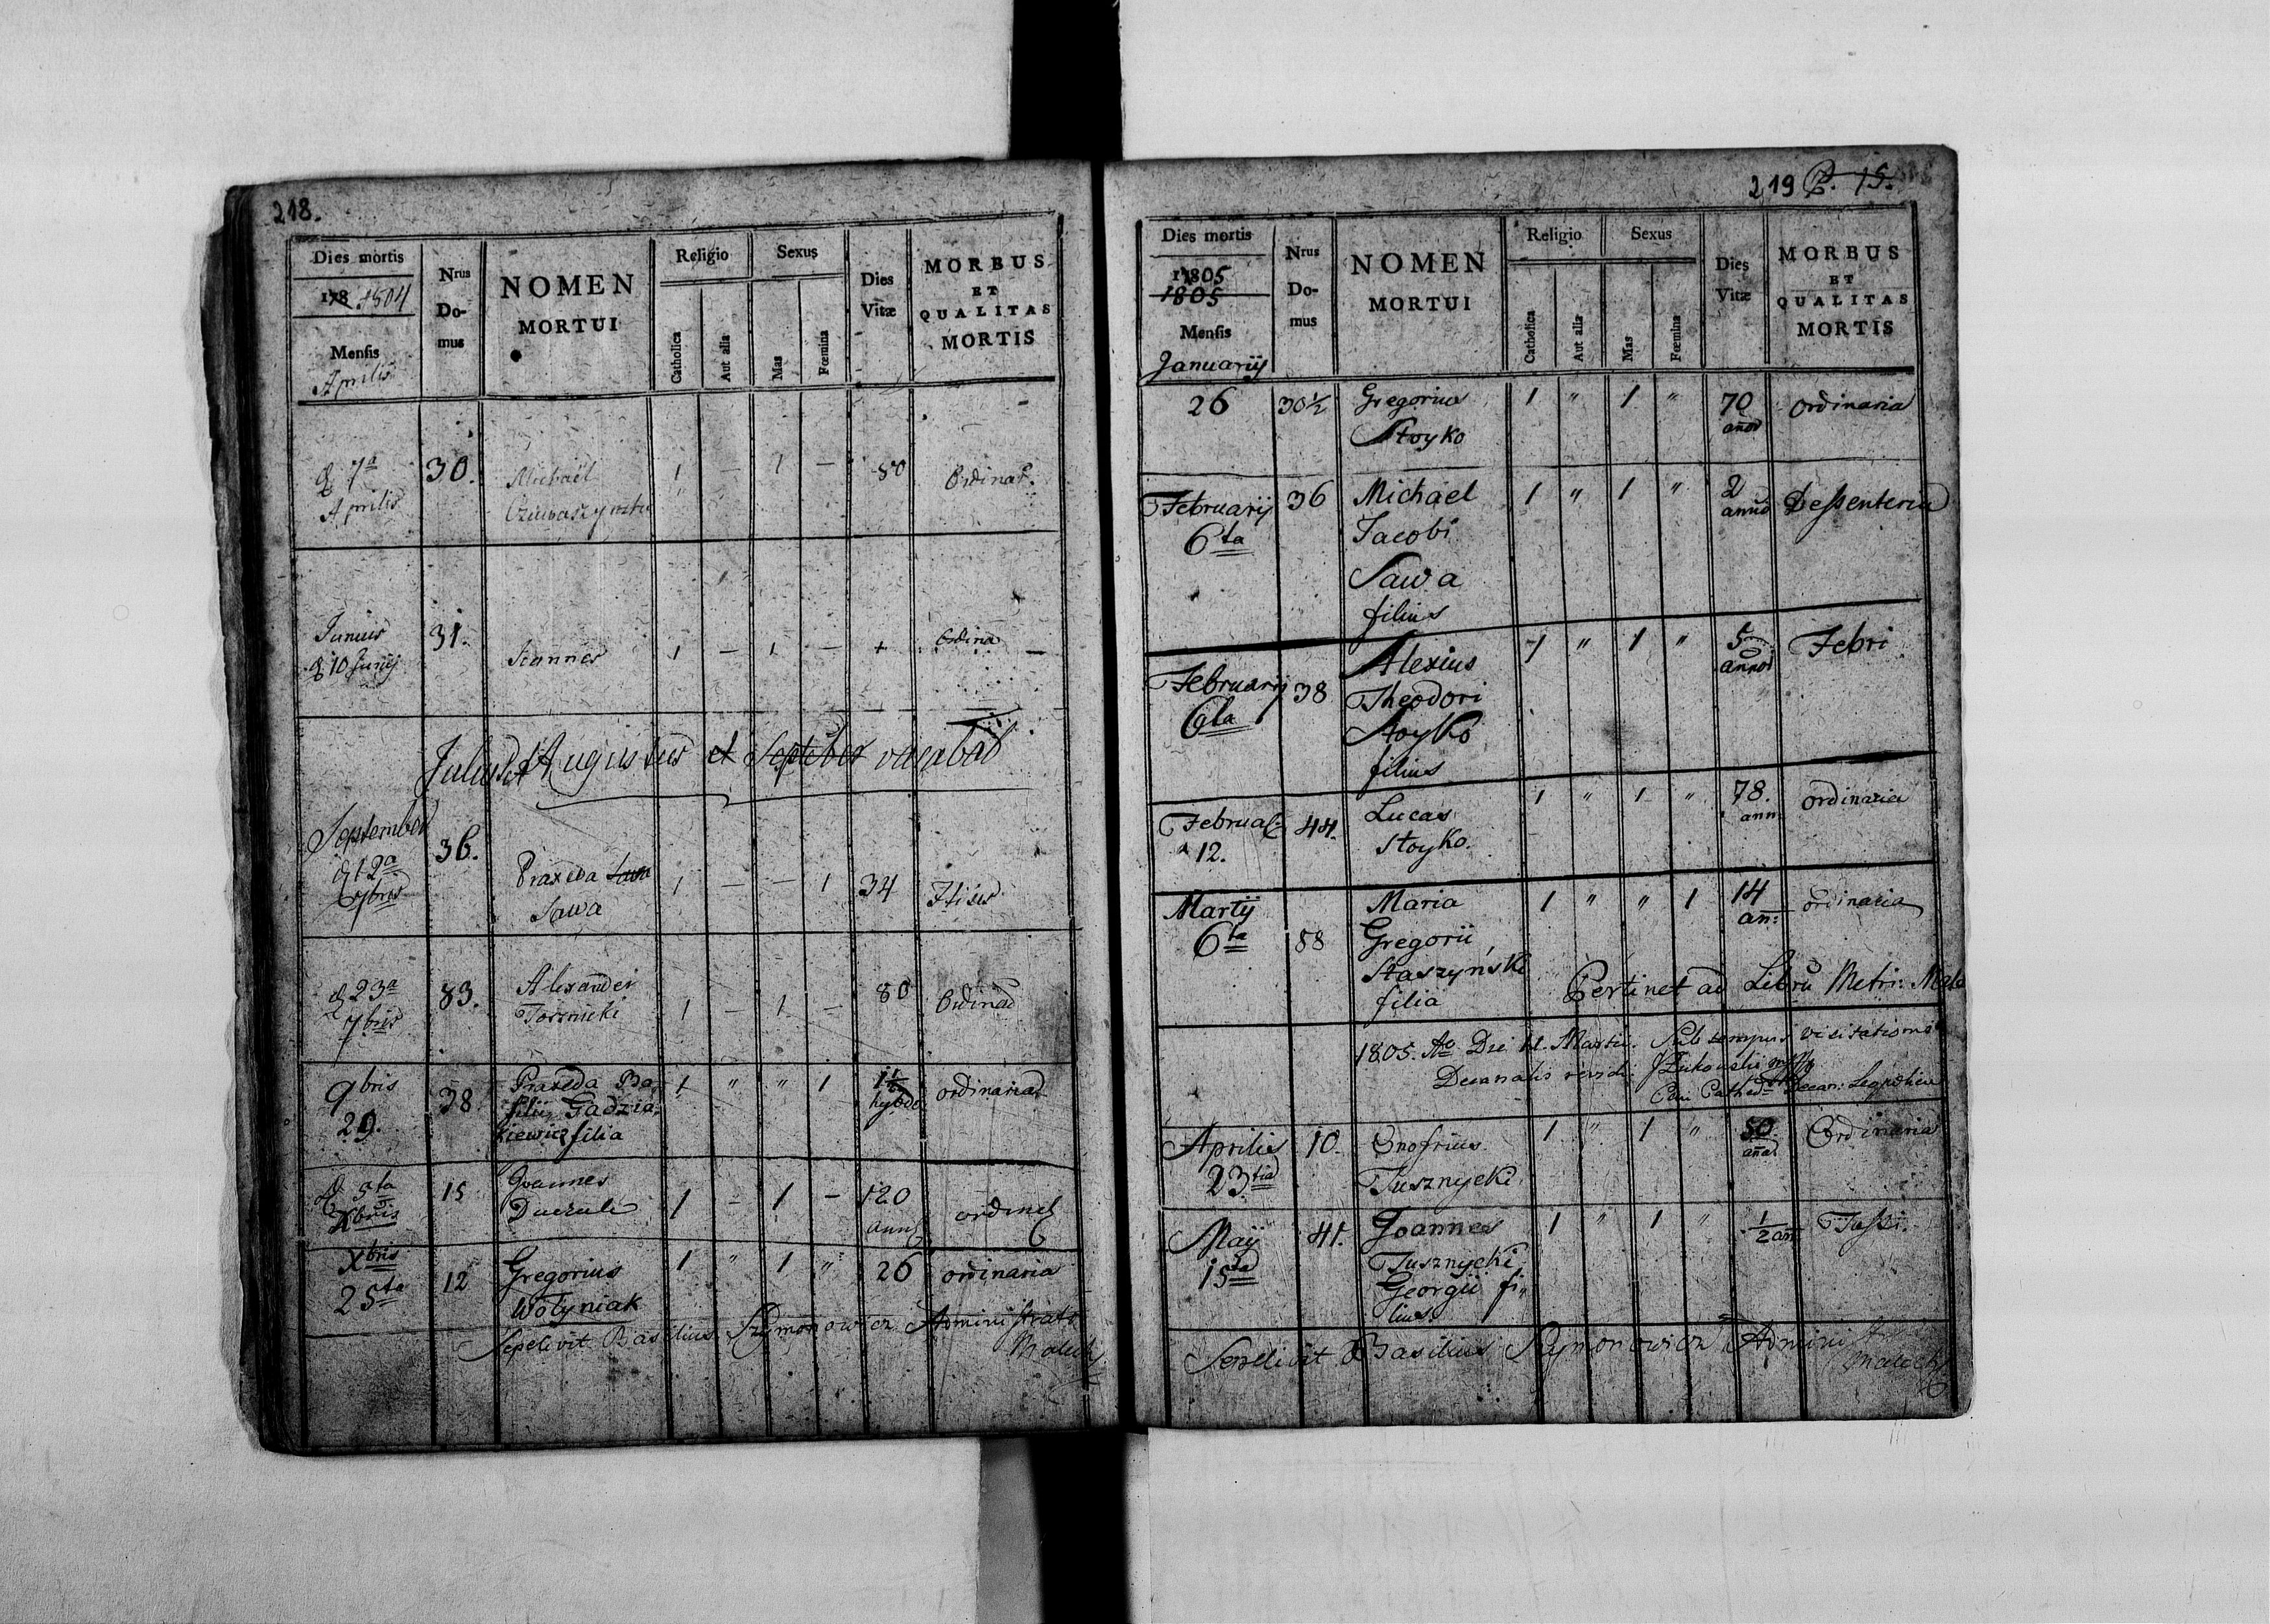 218.
Dies mortis
1804
Mensis
Aprilis
Nrus
Do-
mus
NOMEN
MORTUI
Religio
Catholica
Aut alia
Sexus
Mas
Fœmina
Dies
Vitæ
MORBUS
ET
QUALITAS
MORTIS
7a
Aprilis
30.
Michael
1 — 1 —
80
Ordinar.
Junius
10 Junij
31.
Joannes
1 — 1 —
Ordina
Julius et Augustus et September vacabat
September
12a
7bris
36.
Praxeda Sawa
Sawa
1 — — 1
34
23a
7bris
83.
Alexander
1 — 1 —
80
9bris
29.
38
Praxeda Ba
silii Gadzia
kiewicz filia
1 " " 1
ordinaria
5ta
Xbris
15
Joannes
1 — 1 —
120
ann
Xbris
25ta
12
Gregorius
Wołyniak
1 " 1 "
26
ordinaria
Sepelivit Basilius Szymonowicz Administrator
219 P. 15.
Dies mortis
1805
1805
Mensis
Januarij
Nrus
Do-
mus
NOMEN
MORTUI
Religio
Catholica
Aut alia
Sexus
Mas
Fœmina
Dies
Vitæ
MORBUS
ET
QUALITAS
MORTIS
26
30½
Gregorius
Stoyko
1 " 1 "
70
ordinaria
Februarij
6ta
36
Michael
Jacobi
Sawa
filius
1 " 1 "
2
Februarij
6ta
38
Alexius
Theodori
Stoyko
filius
1 " 1 "
5
Febri
12.
44.
Lucas
Stoyko.
1 " 1 "
78.
ann
ordinaria
Martij
6ta
58
Maria
Gregorii
filia
1 " " 1
14
an:
ordinaria
Pertinet ad Librũ Metri:
1805. Ao Die Martii. Sub tempus visitationis
Decanalis
Aprilis
23tia
10.
Onofrius
Tusznycki
1 " 1 "
50
Ordinaria
Maij
15ta
41.
Joannes
Tusznycki
Georgii fi„
lius
1 " 1 "
1/2 an
Tussi.
Sepelivit Basilius Szymonowicz